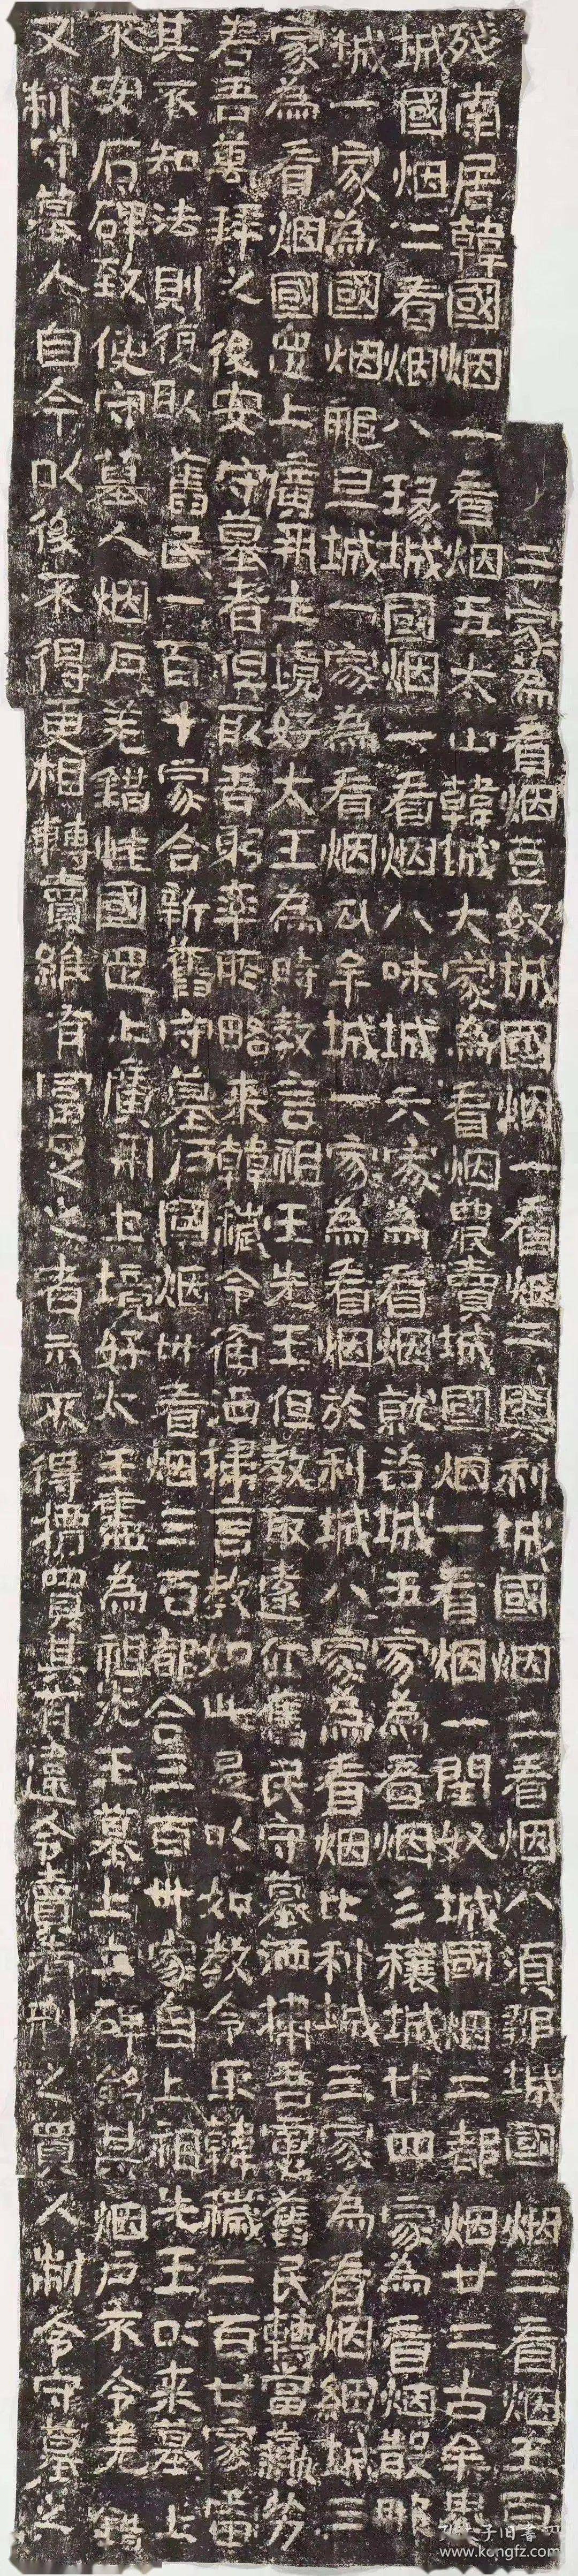 三家為看烟豆奴城國烟一看烟二奧利城國烟二看烟八須鄒城國烟二看烟五百
残南居韓國烟一看烟五太山韓城大家為看烟農賣城國烟一看烟一閏奴城國烟二都烟廿二古牟婁
城國烟二看烟八瑑城國烟一看烟八味城六家為看烟就咨城五家為看烟彡穰城廿四家為看烟散那
城一家為國烟那旦城一家為看烟勾牟城一家為看烟於利城八家為看烟比利城三家為看烟細城三
家為看烟國罡上廣開土境好太王為時教言祖王先王但教取遠近舊民守墓洒掃吾慮舊民轉當羸劣
若吾萬年之後安守墓者但取吾躬率所略來韓穢令備洒掃言教如此是以如教令取韓穢二百廿家慮
其不知法則復取舊民一百十家合新舊守墓戶國烟卅看烟三百都合三百卅家自上祖先王以來墓上
不安石碑致使守墓人烟戶差錯唯國罡上廣開土境好太王盡為祖先王墓上立碑銘其烟戶不令差錯
又制守墓人自今以後不得更相轉賣雖有富足之者亦不得擅買其有違令賣者刑之買人制令守墓之
www.kongfz.com